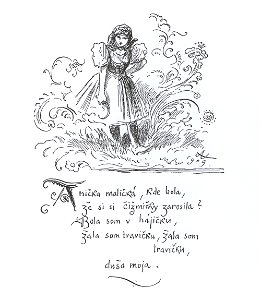 Anička maličká, kde bola,
že si si čižmičky zarosila?
Bola som v hájičku,
žala som travičku, žala som
travičku,
duša moja.